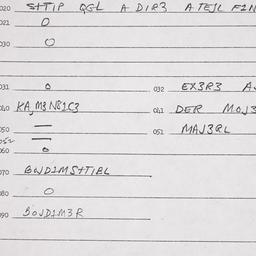 020 S+TIP QGL A DIR3 A TEJL FIN
021 0
030 0
031 0 032 EX3R3 A
040 KA,M3NS1C3 041 DER MOJ3
050 — 051 MAJ3RL
052 —
060 0
070 BWDIMS+TIBL
080 0
090 BOJDIM3R